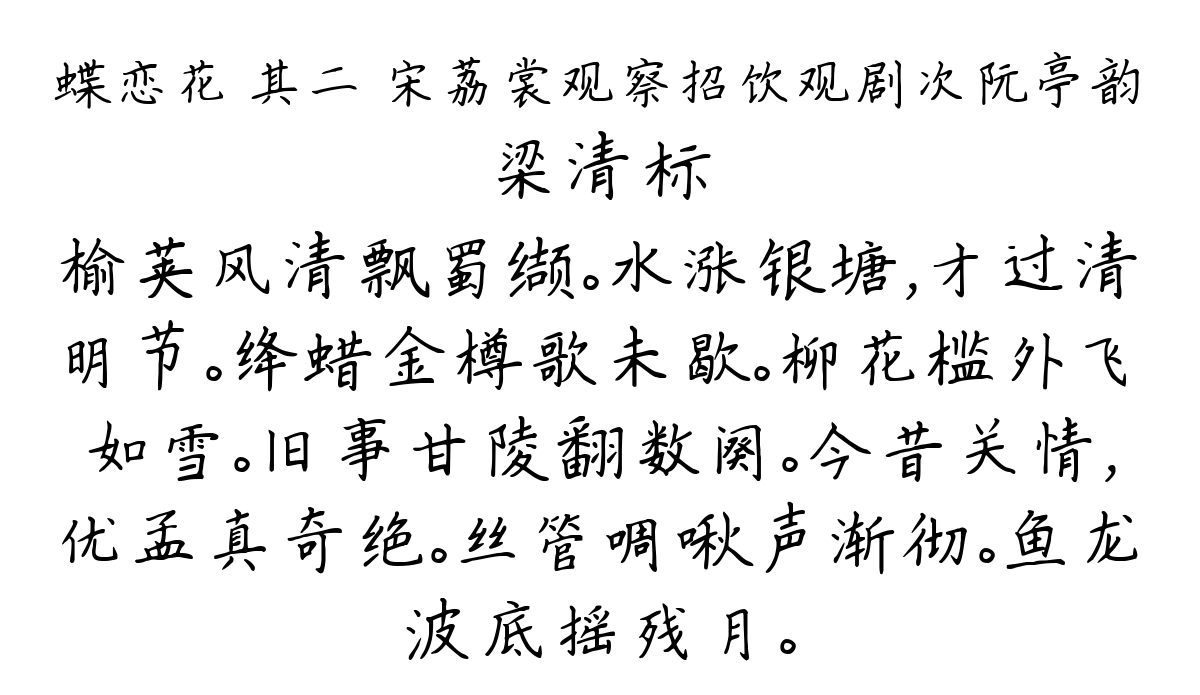 蝶恋花 其二 宋荔裳观察招饮观剧次阮亭韵
梁清标
榆荚风清飘蜀缬。水涨银塘,才过清
明节。绛蜡金樽歌未歇。柳花槛外飞
如雪。旧事甘陵翻数阕。今昔关情,
优孟真奇绝。丝管啁啾声渐彻。鱼龙
波底摇残月。